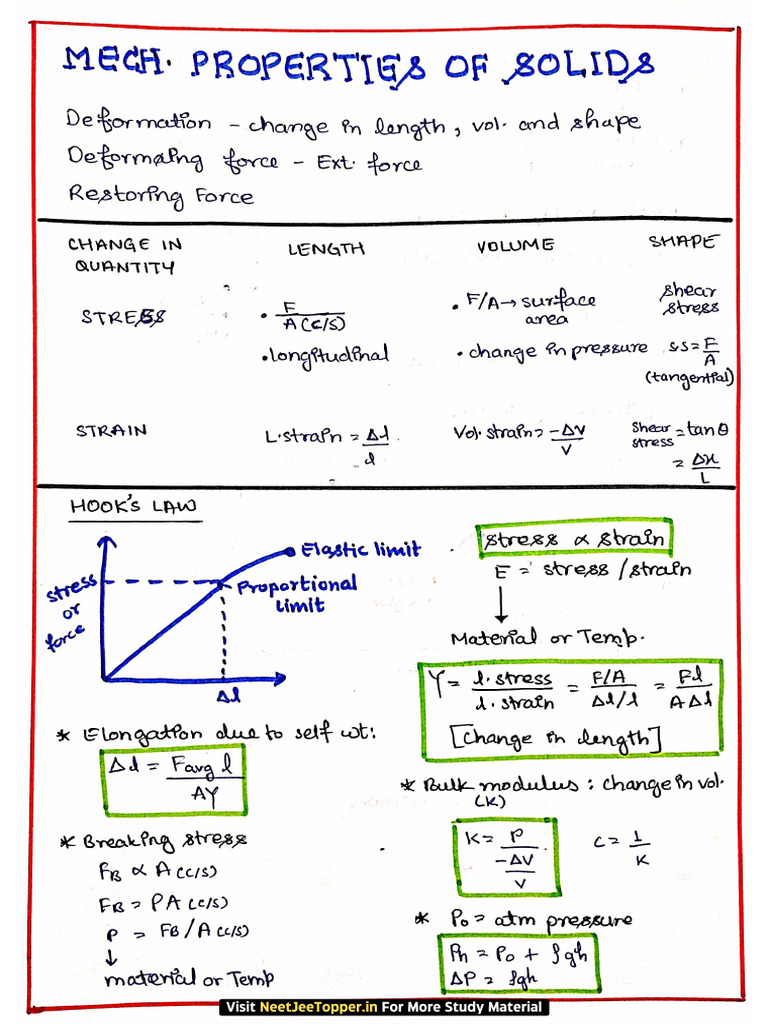 MECH. PROPERTIES OF SOLIDS
Deformation - change in length, vol. and shape
Deformaing force - Ext. force
Restoring Force
CHANGE IN QUANTITY LENGTH VOLUME SHAPE
STRESS
• F / A(C/S)
• longitudinal
• F/A → surface area
• change in pressure
shear stress
s.s = F/A
(tangential)
STRAIN
L.strain = Δl/l
Vol. strain = -ΔV/V
shear stress = tan θ
= Δx/L
HOOK'S LAW
stress or force
Elastic limit
Proportional limit
Δl
stress ∝ strain
E = stress/strain
↓
Material or Temp.
Y = l.stress / l.strain = F/A / Δl/l = Fl / AΔl
[Change in length]
* Elongation due to self wt:
Δl = Favg l / AY
* Breaking stress
FB ∝ A (C/S)
FB = PA (C/S)
P = FB/A (C/S)
↓
material or Temp
* Bulk modulus : change in vol.
(K)
K = P / -ΔV/V
C = 1/K
* P₀ = atm pressure
Ph = P₀ + ρgh
ΔP = ρgh
Visit NeetJeeTopper.in For More Study Material